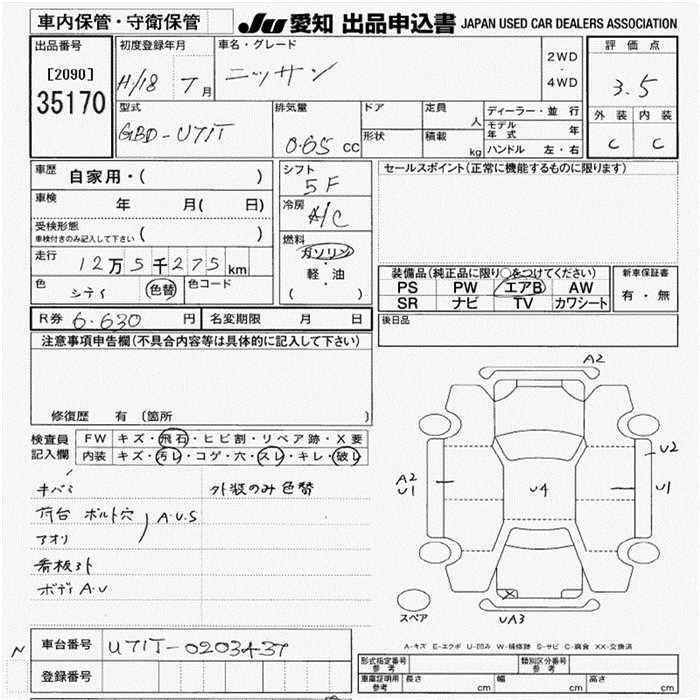 車内保管・守衛保管
JU 愛知 出品申込書 JAPAN USED CAR DEALERS ASSOCIATION
出品番号
[2090]
35170
初度登録年月
H/18 7月
車名・グレード
ニッサン
2WD
・
4WD
評価点
3.5
外装 内装
C C
型式
GBD-U71T
排気量
0.65 cc
ドア
形状
定員 人
積載 kg
ディーラー・並行
モデル年式 年
ハンドル 左・右
車歴 自家用・( )
車検 年 月( 日)
受検形態
車検付きのみ記入して下さい ( )
走行
12万5千275km
色
シティ 色替
色コード
シフト
5F
冷房
A/C
燃料
ガソリン
・
軽・油
( )
セールスポイント(正常に機能するものに限ります)
装備品(純正品に限り○をつけてください)
PS PW エアB AW
SR ナビ TV カワシート
新車保証書
有・無
R券 6.630 円
名変期限 月 日
後日品
注意事項申告欄(不具合内容等は具体的に記入して下さい)
修復歴 有 (箇所 )
検査員記入欄
FW キズ・飛石・ヒビ割・リペア跡・X要
内装 キズ・汚レ・コゲ・穴・スレ・キレ・破レ
キバミ
外装のみ色替
荷台 ボルト穴
アオリ
A・U・S
看板外
ボディ A・U
A2
U2
A2
U1
U4
U1
X
UA3
スペア
A-キズ E-エクボ U-凹み W-補修跡 S-サビ C-腐食 XX-交換済
N
車台番号 U71T-0203437
登録番号
形式指定番号
参考
類別区分番号
参考
車庫証明用
参考
長さ cm
幅 cm
高さ cm